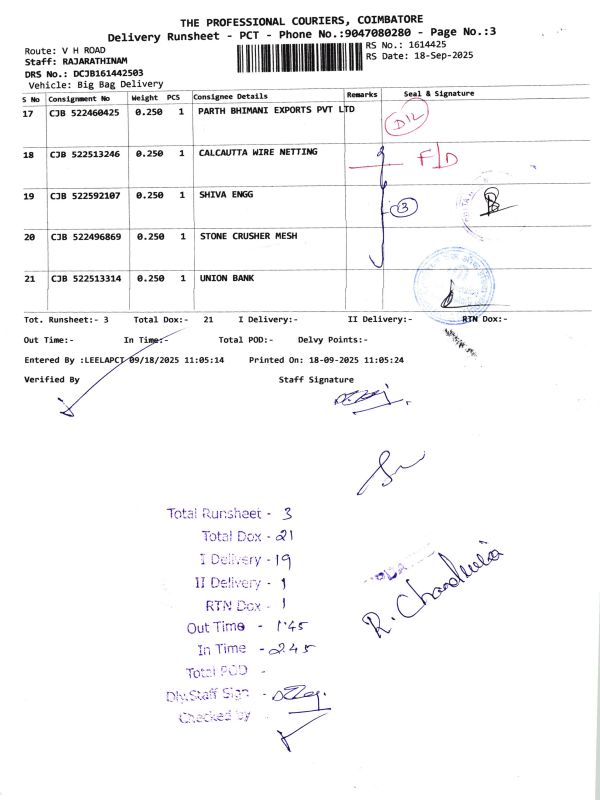 THE PROFESSIONAL COURIERS, COIMBATORE
Delivery Runsheet - PCT - Phone No.:9047080280 - Page No.:3
Route: V H ROAD
RS No.: 1614425
Staff: RAJARATHINAM
RS Date: 18-Sep-2025
DRS No.: DCJB161442503
Vehicle: Big Bag Delivery
S No Consignment No Weight PCS Consignee Details Remarks Seal & Signature
17 CJB 522460425 0.250 1 PARTH BHIMANI EXPORTS PVT LTD
D/L
18 CJB 522513246 0.250 1 CALCAUTTA WIRE NETTING
F/D
19 CJB 522592107 0.250 1 SHIVA ENGG
3
20 CJB 522496869 0.250 1 STONE CRUSHER MESH
21 CJB 522513314 0.250 1 UNION BANK
Tot. Runsheet:- 3 Total Dox:- 21 I Delivery:- II Delivery:- RTN Dox:-
Out Time:- In Time:- Total POD:- Delvy Points:-
Entered By :LEELAPCT 09/18/2025 11:05:14 Printed On: 18-09-2025 11:05:24
Verified By Staff Signature
Total Runsheet - 3
Total Dox - 21
I Delivery - 19
II Delivery - 1
RTN Dox - 1
Out Time - 1.45
In Time - 2.45
Total POD -
Dly.Staff Sign -
Checked by -